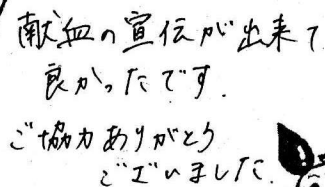 献血の宣伝が出来て
良かったです.
ご協力ありがとう
ございました.